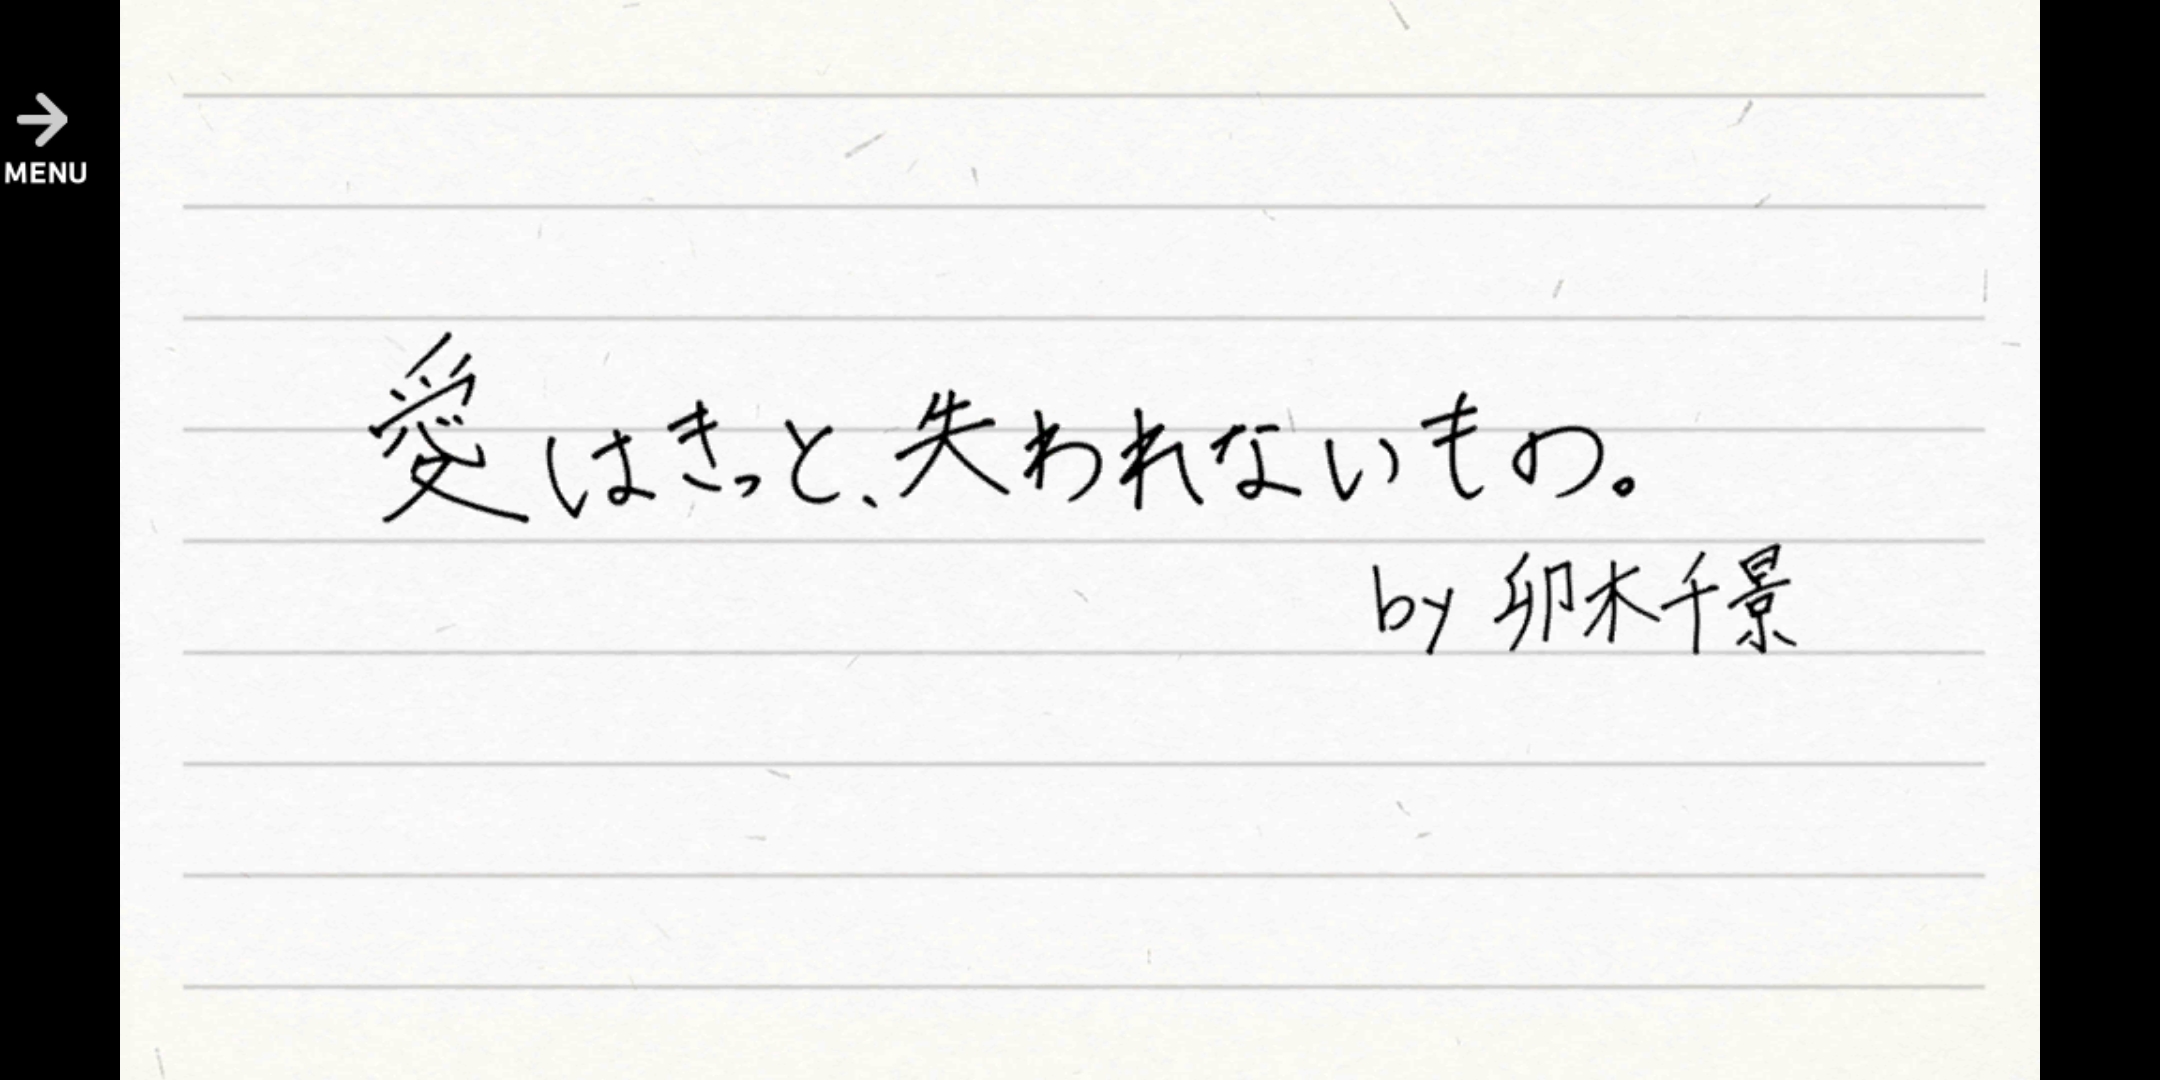 MENU
愛はきっと、失われないもの。
by 卯木千景